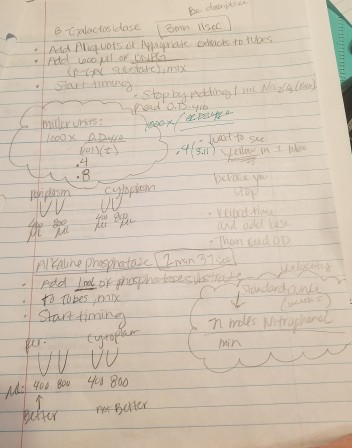 B Galactosidase 3min 11sec
• Add Aliquots of Appropriate extracts to tubes
• Add 400 µl of
substrate), mix
• Start timing
• Stop by Adding 1 mL Na2
Read O.D. 410
Miller units:
1000 x O.D.420
.4 (3.11)
.4
.8
• wait to see
Yellow in 1 tube
before you
stop
• Record time
and add base
• Then read OD
periplasm cytoplasm
400 800 400 800
µl µl µl µl
Alkaline phosphatase 2 min 37 sec
• Add 1mL of phosphatase substrate
• to tubes, mix
• Start timing
Standard curve
n moles Nitrophenol
min
per. cytoplasm
µL: 400 800 400 800
Better not Better